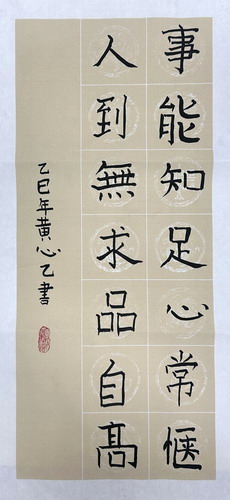 事能知足心常愜
人到無求品自高
乙巳年黄心乙書